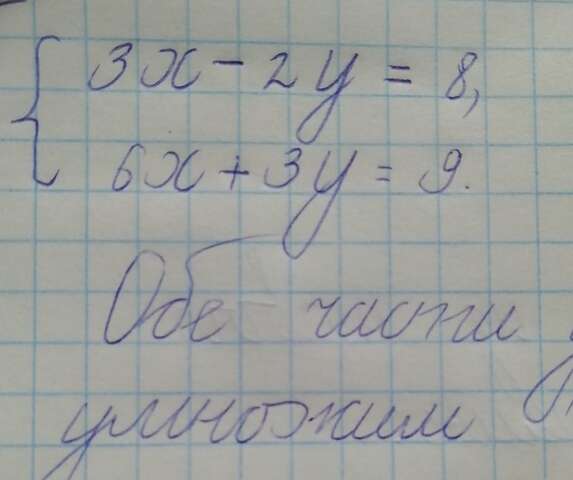 3x - 2y = 8,
6x + 3y = 9.
Обе части
умножим